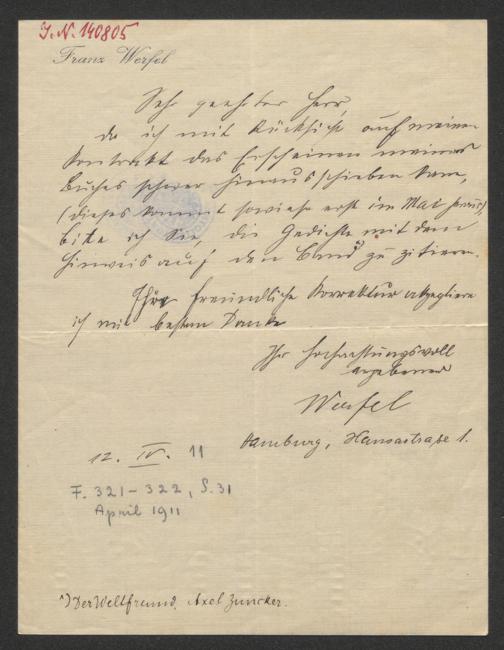 J.N. 140805
Franz Werfel
Sehr geehrter Herr,
da ich mit Rücksicht auf meinen
Kontrakt das Erscheinen meines
Buches schwer hinausschieben kann,
(dieses kommt sowieso erst im Mai heraus),
bitte ich Sie, die Gedichte mit dem
Hinweis auf den Band *) zu zitieren.
Ihre freundliche Korrektur
ich mit bestem Danke
Ihr hochachtungsvoll
ergebener
Werfel
Hamburg, Hansastraße 1.
12. IV. 11
F. 321-322, S. 31
April 1911
*) Der Weltfreund, Axel Juncker.